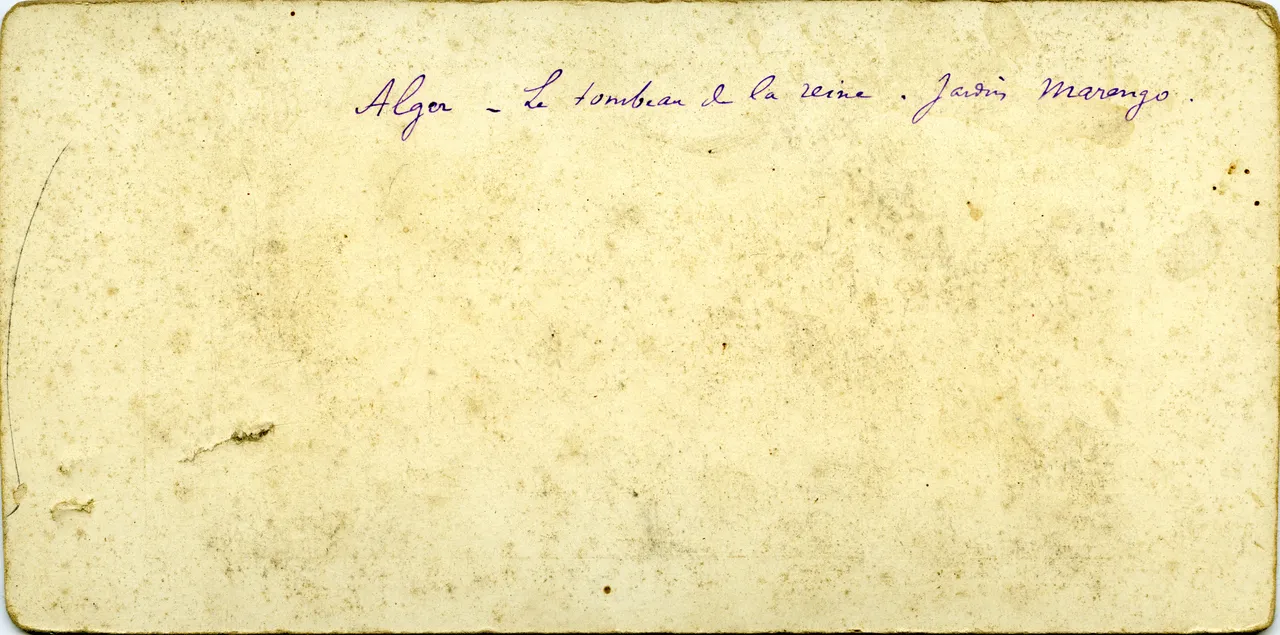 Alger - Le tombeau de la reine. Jardin Marengo.